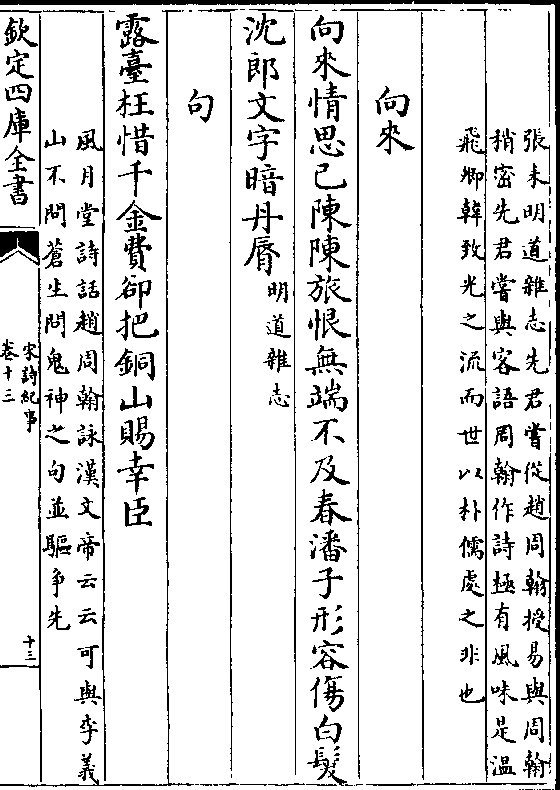 張耒明道雜志先君嘗從趙周翰授易與周翰
稍密先君嘗與客語周翰作詩極有風味是溫
飛卿韓致光之流而世以朴儒處之非也
向來
向來情思已陳陳旅恨無端不及春潘子形容傷白髮
沈郎文字暗丹脣明道雜志
句
露臺枉惜千金費卻把銅山賜幸臣
風月堂詩話趙周翰詠漢文帝云云可與李義
山不問蒼生問鬼神之句並驅爭先
欽定四庫全書
宋詩紀事
卷十三
十三